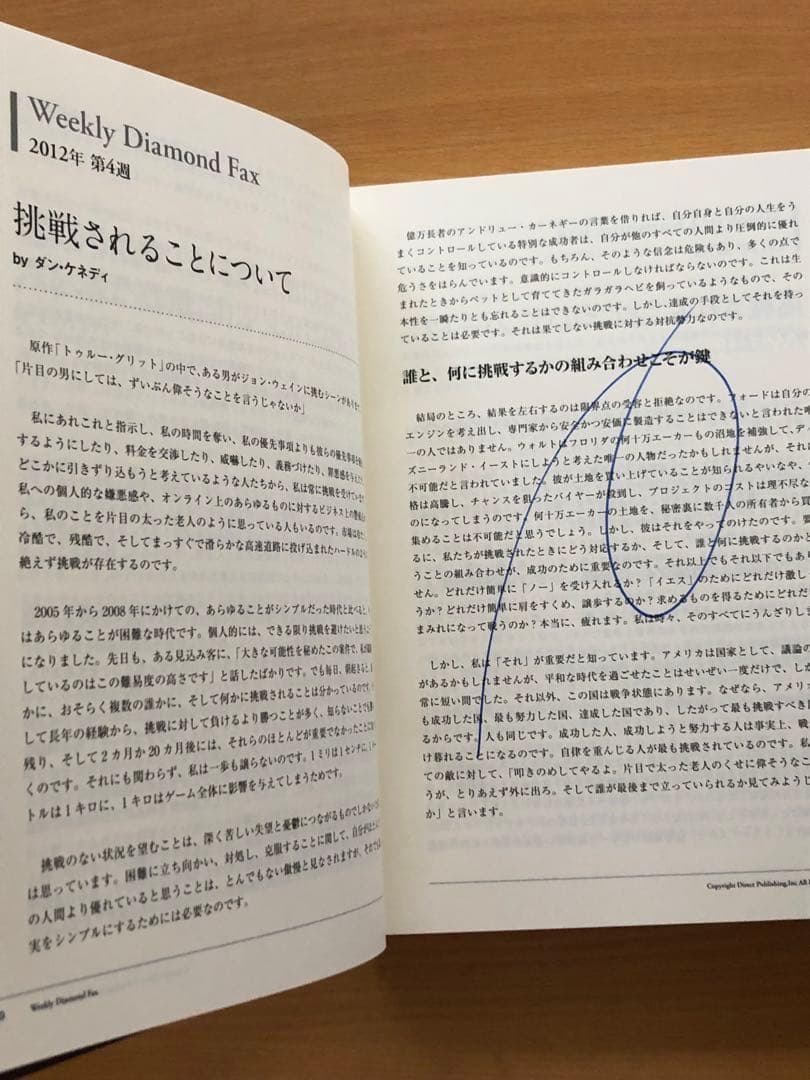 Weekly Diamond Fax
2012年 第4週
挑戦されることについて
by ダン・ケネディ
原作「トゥルー・グリット」の中で、ある男がジョン・ウェインに挑むシーンがあります。
「片目の男にしては、ずいぶん偉そうなことを言うじゃないか」
私にあれこれと指示し、私の時間を奪い、私の優先事項よりも彼らの優先事項を
するようにしたり、料金を交渉したり、威嚇したり、義務づけたり、罪悪感を
どこかに引きずり込もうと考えているような人たちから、私は常に挑戦を受けてい
私への個人的な嫌悪感や、オンライン上のあらゆるものに対するビジネス上の
ら、私のことを片目の太った老人のように思っている人もいるのです。市場は
冷酷で、残酷で、そしてまっすぐで滑らかな高速道路に投げ込まれたハードルのように
絶えず挑戦が存在するのです。
2005年から2008年にかけての、あらゆることがシンプルだった時代と比べると、
はあらゆることが困難な時代です。個人的には、できる限り挑戦を避けたいと思う
になりました。先日も、ある見込み客に、「大きな可能性を秘めたこの案件で、私が
しているのはこの難易度の高さです」と話したばかりです。でも毎日、朝起きると、
かに、おそらく複数の誰かに、そして何かに挑戦されることは分かっているのです。
して長年の経験から、挑戦に対して負けるより勝つことが多く、知らないことで
残り、そして2カ月か20カ月後には、それらのほとんどが重要でなかったことに
くのです。それにも関わらず、私は一歩も譲らないのです。1ミリは1センチに、1
トルは1キロに、1キロはゲーム全体に影響を与えてしまうためです。
挑戦のない状況を望むことは、深く苦しい失望と憂鬱につながるものでしかない
は思っています。困難に立ち向かい、対処し、克服することに関して、自分が
の人間より優れていると思うことは、とんでもない傲慢と見なされますが、それでも
実をシンプルにするためには必要なのです。
Weekly Diamond Fax
億万長者のアンドリュー・カーネギーの言葉を借りれば、自分自身と自分の人生をう
まくコントロールしている特別な成功者は、自分が他のすべての人間より圧倒的に優れ
ていることを知っているのです。もちろん、そのような信念は危険もあり、多くの点で
危うさをはらんでいます。意識的にコントロールしなければならないのです。これは生
まれたときからペットとして育ててきたガラガラヘビを飼っているようなもので、その
本性を一瞬たりとも忘れることはできないのです。しかし、達成の手段としてそれを持っ
ていることは必要です。それは果てしない挑戦に対する対抗勢力なのです。
誰と、何に挑戦するかの組み合わせこそが鍵
結局のところ、結果を左右するのは限界点の受容と拒絶なのです。フォードは自分の
エンジンを考え出し、専門家から安全かつ安価に製造することはできないと言われた唯
一の人ではありません。ウォルトはフロリダの何十万エーカーもの沼地を補強して、ディ
ズニーランド・イーストにしようと考えた唯一の人物だったかもしれませんが、それは
不可能だと言われていました。彼が土地を買い上げていることが知られるやいなや、
格は高騰し、チャンスを狙ったバイヤーが殺到し、プロジェクトのコストは理不尽な
のになってしまうのです。何十万エーカーの土地を、秘密裏に数千人の所有者から買
集めることは不可能だと思うでしょう。しかし、彼はそれをやってのけたのです。要
るに、私たちが挑戦されたときにどう対応するか、そして、誰と何に挑戦するのかと
うことの組み合わせが、成功のために重要なのです。それ以上でもそれ以下でもあり
せん。どれだけ簡単に「ノー」を受け入れるか？「イエス」のためにどれだけ激し
うか？どれだけ簡単に肩をすくめ、譲歩するのか？求めるものを得るためにどれだ
まみれになって戦うのか？本当に、疲れます。私は時々、そのすべてにうんざりしま
しかし、私は「それ」が重要だと知っています。アメリカは国家として、議論の
があるかもしれませんが、平和な時代を過ごせたことはせいぜい一度だけで、しか
常に短い間でした。それ以外、この国は戦争状態にあります。なぜなら、アメリカ
も成功した国、最も努力した国、達成した国であり、したがって最も挑戦すべき国
るからです。人も同じです。成功した人、成功しようと努力する人は事実上、戦
け暮れることになるのです。自律を重んじる人が最も挑戦されているのです。私
ての敵に対して、「叩きのめしてやるよ。片目で太った老人のくせに偉そうなこ
うが、とりあえず外に出ろ。そして誰が最後まで立っていられるか見てみようじ
か」と言います。
Copyright Direct Publishing,Inc All